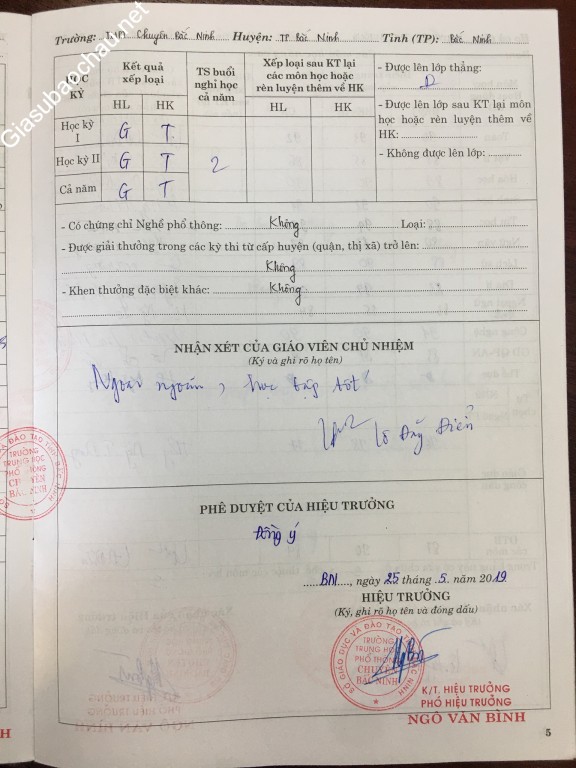 Giasubaochau.net
Trường: THPT Chuyên Bắc Ninh Huyện: TP Bắc Ninh Tỉnh (TP): Bắc Ninh
HỌC KỲ
Kết quả xếp loại
TS buổi nghỉ học cả năm
Xếp loại sau KT lại các môn học hoặc rèn luyện thêm về HK
- Được lên lớp thẳng:
HL HK HL HK
- Được lên lớp sau KT lại môn học hoặc rèn luyện thêm về HK:
- Không được lên lớp:
Học kỳ I G T
Học kỳ II G T 2
Cả năm G T
- Có chứng chỉ Nghề phổ thông: Không Loại:
- Được giải thưởng trong các kỳ thi từ cấp huyện (quận, thị xã) trở lên:
Không
- Khen thưởng đặc biệt khác: Không
NHẬN XÉT CỦA GIÁO VIÊN CHỦ NHIỆM
(Ký và ghi rõ họ tên)
Ngoan ngoãn, học tập tốt
PHÊ DUYỆT CỦA HIỆU TRƯỞNG
Đồng ý
BN, ngày 25 tháng 5 năm 2019
HIỆU TRƯỞNG
(Ký, ghi rõ họ tên và đóng dấu)
SỞ GIÁO DỤC VÀ ĐÀO TẠO TỈNH BẮC NINH
TRƯỜNG
TRUNG HỌC
PHỔ THÔNG
CHUYÊN
BẮC NINH
K/T. HIỆU TRƯỞNG
PHÓ HIỆU TRƯỞNG
NGÔ VĂN BÌNH
5